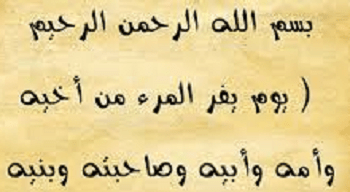 بسم الله الرحمن الرحيم
( يوم يفر المرء من أخيه
وأمه وأبيه وصاحبته وبنيه